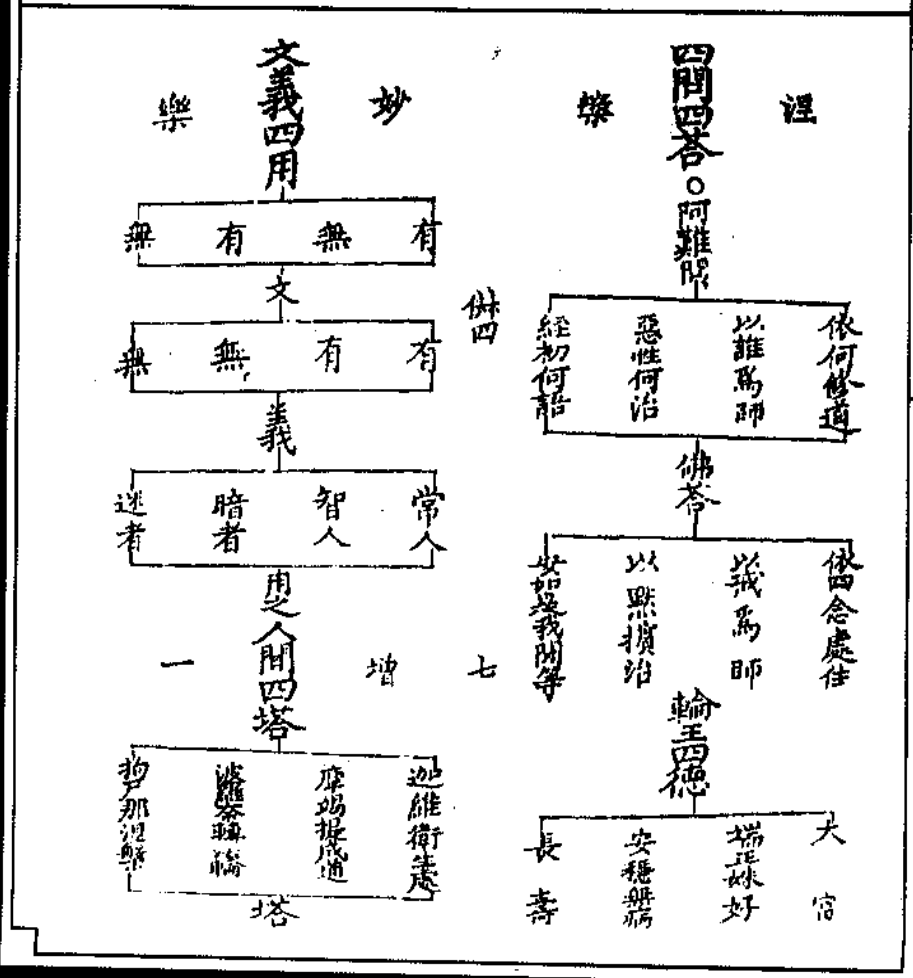 涅槃
四問四荅○阿難問
依何修道
以誰為師
惡性何治
經初何語
佛荅
依四念處住
以戒為師
以默擯治
安如是我聞等
輪王四德
大富
端正姝好
安穩無病
長壽
俱四
七
妙樂
文義四用
有
無
有
無
文
有
有
無
無
義
常人
智人
暗者
迷者
用之
增一
人間四塔
迦維衛生處
摩竭提成道
波羅奈轉輪
拘尸那涅槃
塔